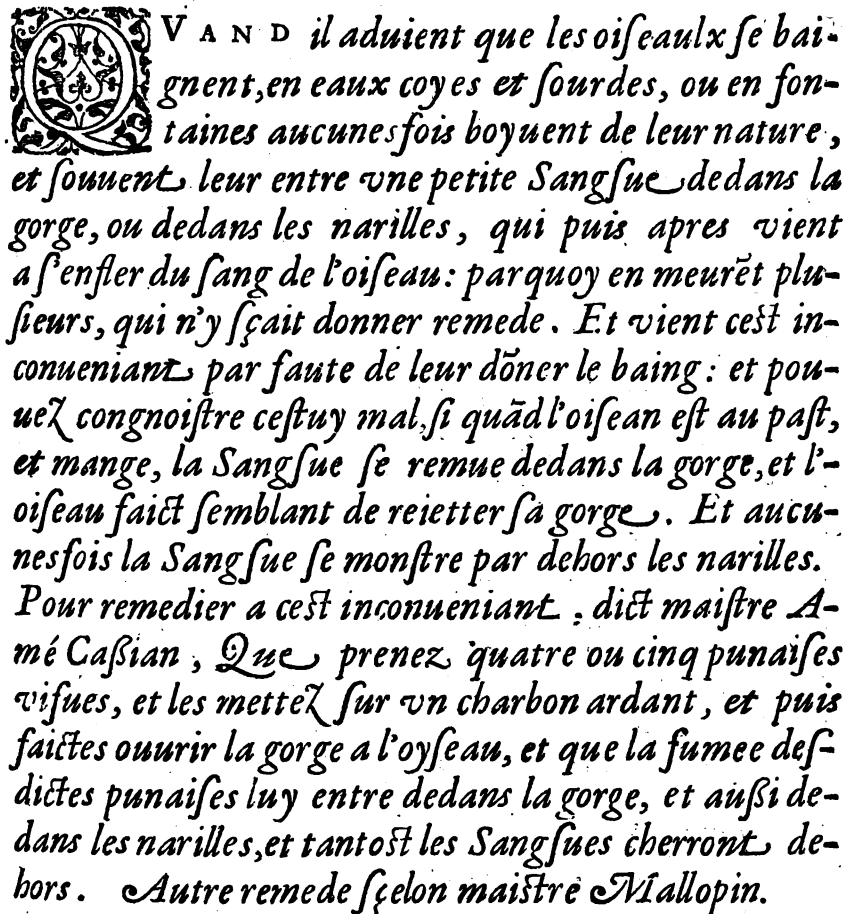 QVAND il aduient que les oiſeaulx ſe bai-
gnent, en eaux coyes et ſourdes, ou en fon-
taines aucunesfois boyuent de leur nature,
et ſouuent leur entre vne petite Sangſue dedans la
gorge, ou dedans les narilles, qui puis apres vient
a ſ'enfler du ſang de l'oiſeau: parquoy en meurēt plu-
ſieurs, qui n'y ſçait donner remede. Et vient ceſt in-
conueniant par faute de leur dōner le baing: et pou-
uez congnoiſtre ceſtuy mal, ſi quād l'oiſean eſt au paſt,
et mange, la Sangſue ſe remue dedans la gorge, et l'-
oiſeau faict ſemblant de reietter ſa gorge. Et aucu-
nesfois la Sangſue ſe monſtre par dehors les narilles.
Pour remedier a ceſt inconueniant, dict maiſtre A-
mé Caßian, Que prenez quatre ou cinq punaiſes
vifues, et les mettez ſur vn charbon ardant, et puis
faictes ouurir la gorge a l'oyſeau, et que la fumee deſ-
dictes punaiſes luy entre dedans la gorge, et außi de-
dans les narilles, et tantoſt les Sangſues cherront de-
hors. Autre remede ſçelon maiſtre Mallopin.